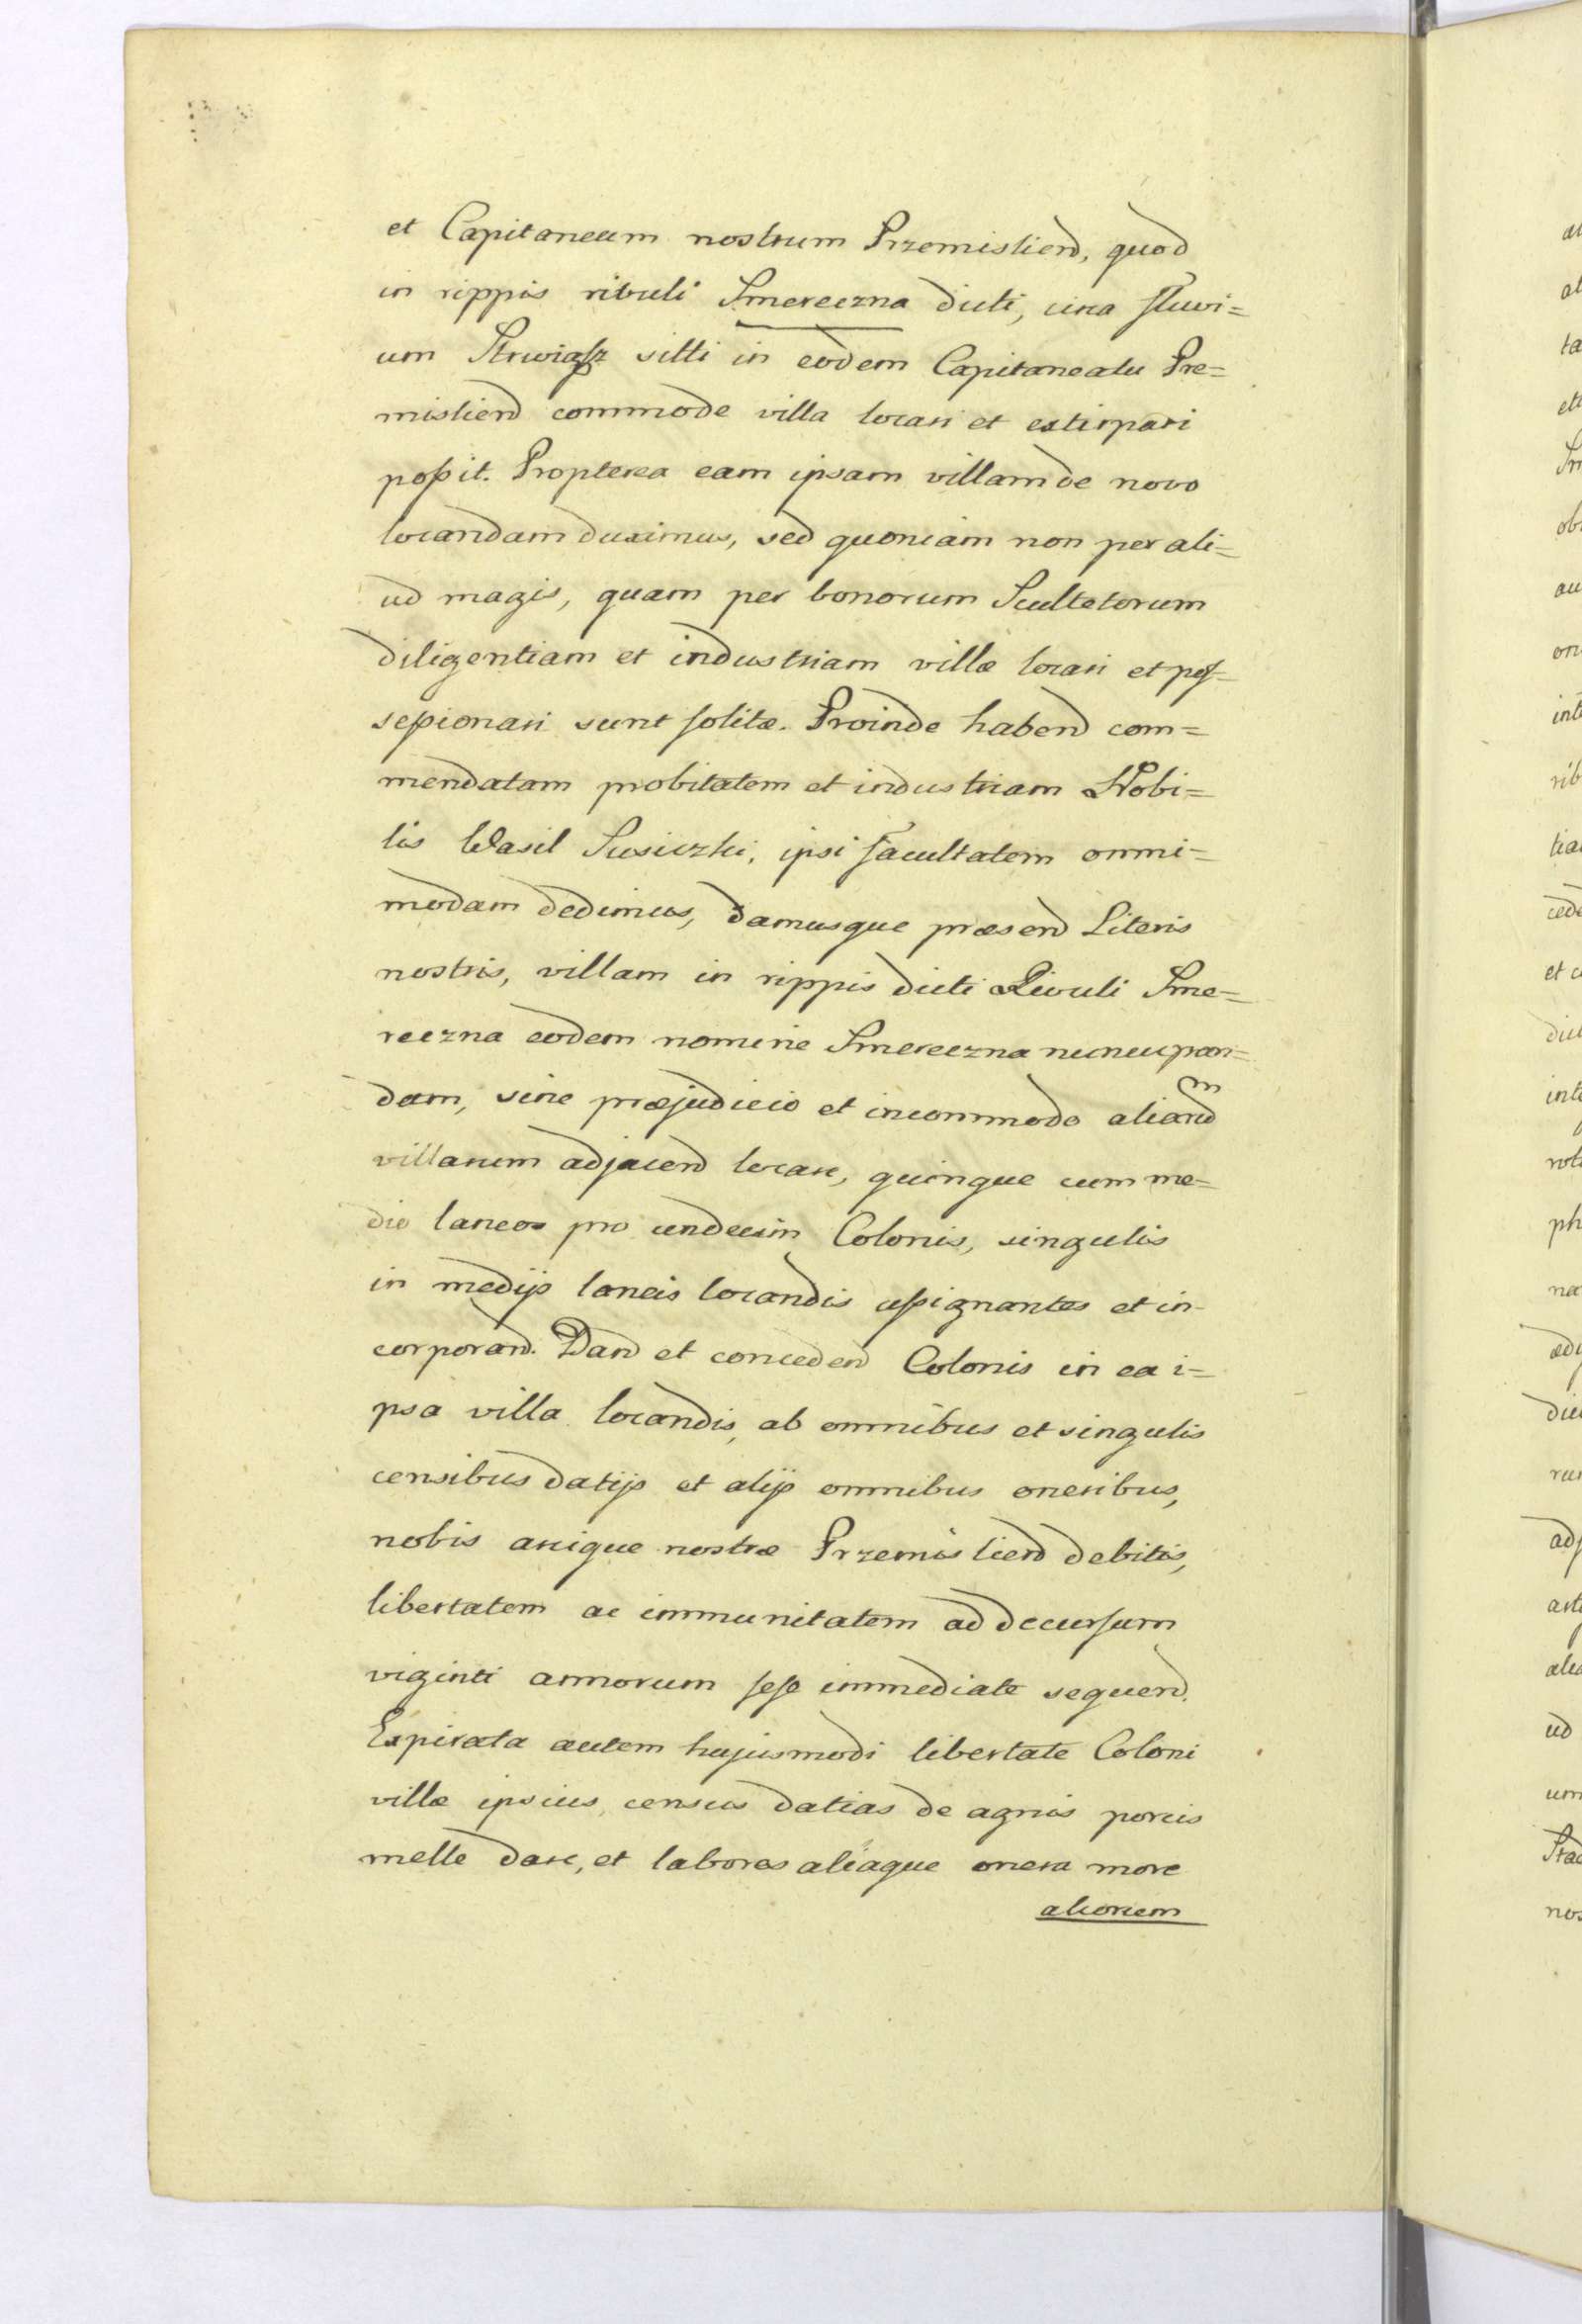 et Capitaneum nostrum Przemislien̄d, quod
in rippis ribuli Smereczna dicti, circa fluvi=
um Strwiąsz sitti in eodem Capitaneatu Pre=
misliend commode villa locari et extirpari
poßit. Propterea eam ipsam villam de novo
locandam duximus, sed quoniam non per ali=
ud magis, quam per bonorum Scultetorum
diligentiam et industriam villæ locari et pos=
seßionari sunt solitæ. Proinde habend com=
mendatam probitatem et industriam Nobi=
lis Wasil Susiczki, ipsi facultatem omni=
modam dedimus, damusque præsend Literis
nostris, villam in rippis dicti Rivuli Sme=
reczna eodem nomine Smereczna nuncupan=
dam, sine præjudicio et incommodo aliarum
villarum adjacend locare, quinque cum me=
dio laneos pro undecim Colonis, singulis
in medijs laneis locandis aßignantes et in-
corporand. Dand et conceden̄d Colonis in ea i=
psa villa locandis, ab omnibus et singulis
censibus datijs et alijs omnibus oneribus,
nobis arcique nostræ Przemisliend debitis,
libertatem ac immunitatem ad decursum
viginti annorum sese immediate sequend.
Expirata autem hujusmodi libertate Coloni
villæ ipsius, census datias de agnis porcis
melle dare, et labores aliaque onera more
aliorum